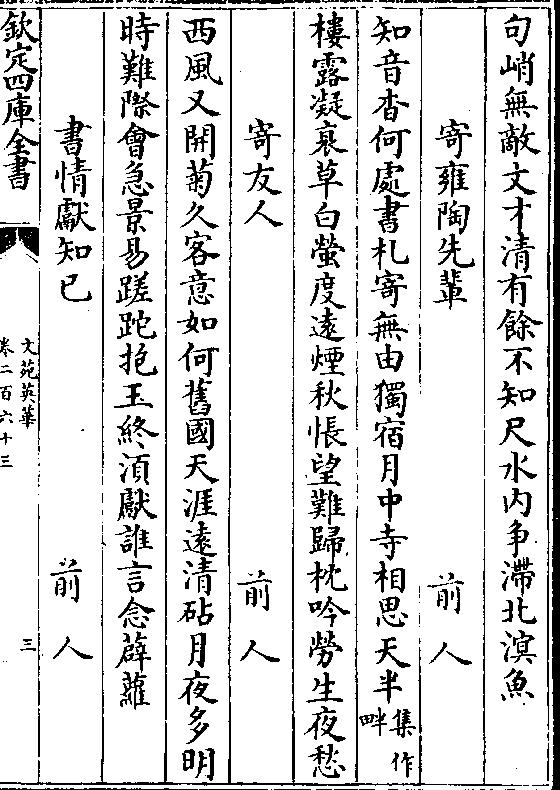 句峭無敵文才清有餘不知尺水内争滯北溟魚
寄雍陶先輩 前人
知音杳何處書札寄無由獨宿月中寺相思天半集作畔
樓露凝衰草白螢度遠煙秋悵望難歸枕吟勞生夜愁
寄友人 前人
西風又開菊久客意如何舊國天涯遠清砧月夜多明
時難際會急景易蹉跎抱玉終湏獻誰言念薜蘿
書情獻知已 前人
欽定四庫全書
文苑英華
卷二百六十三
三